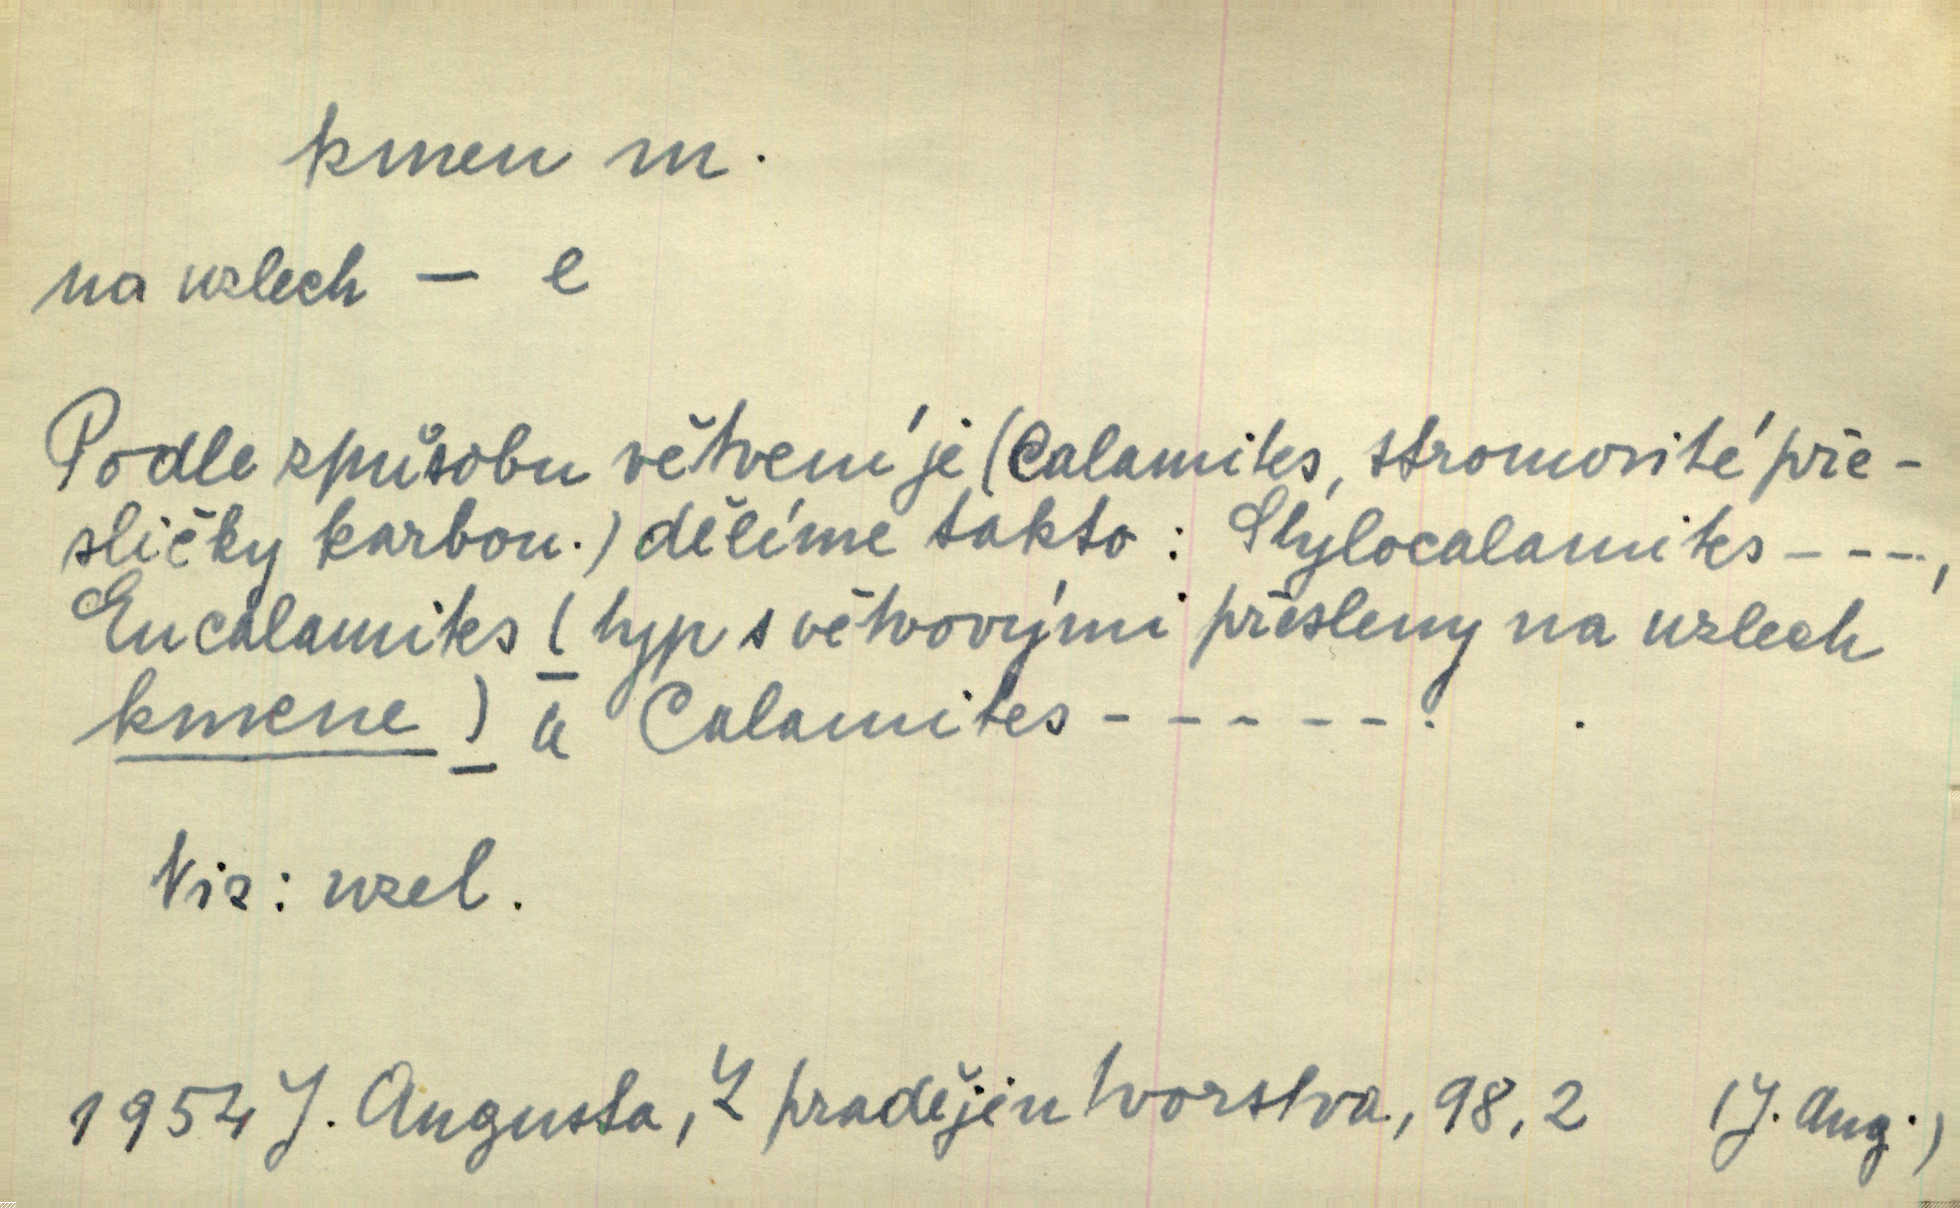 kmen m.
na uzlech – e
Podle způsobu větvení je (Calamites, stromovité pře-
sličky karbon.) dělíme takto: Stylocalamites - - - -,
Eucalamites (typ s větvovými přesleny na uzlech
kmene) a Calamites - - - - - - .
Viz: uzel.
1954 J. Augusta, Z pradějin tvorstva, 98, 2 (J. Aug.)